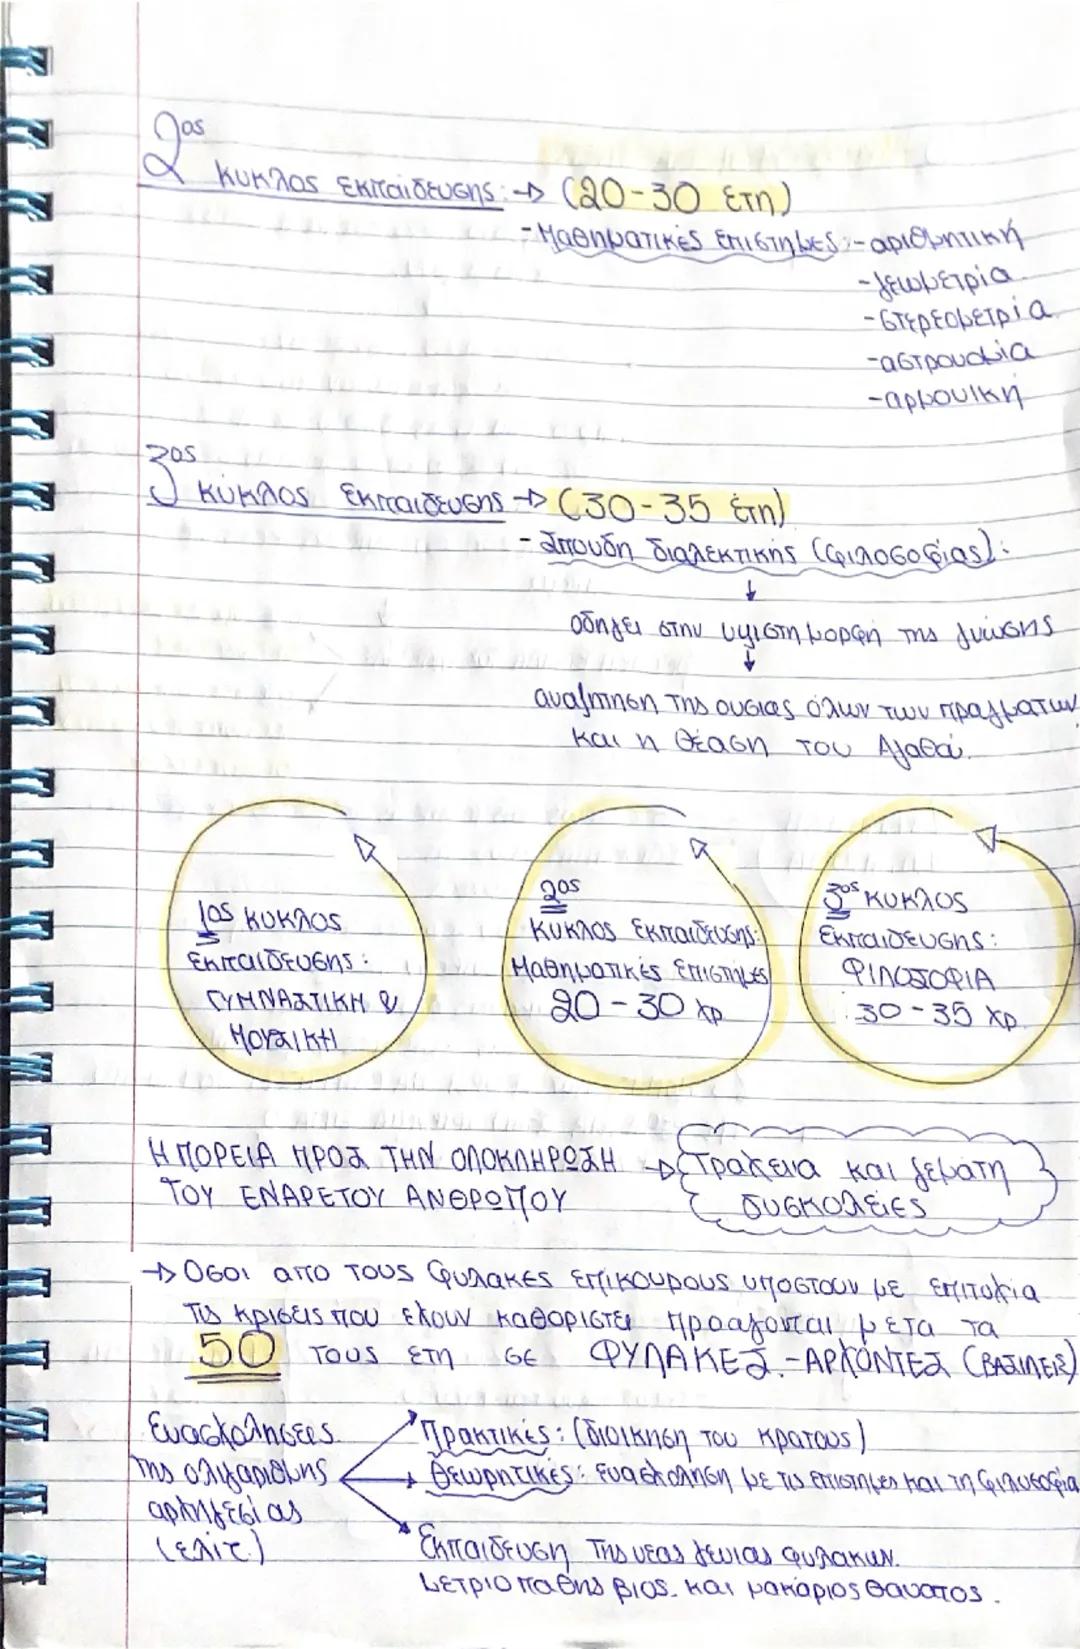 2ος κυκλος εκπαίδευσης: → (20-30 έτη)
- Μαθηματικές επιστήμες: - αριθμητική
- γεωμετρία
- στερεομετρία
- αστρονομία
- αρμονική
3ος κύκλος εκπαιδευσης → (30-35 έτη)
- Σπουδη διαλεκτικής (φιλοσοφίας):
↓
οδηγεί στην υψιστη μορφή της γνώσης
↓
αναζητηση της ουσιας όλων των πραγματων
και η θέαση του Αγαθού.
1ος κυκλος
εκπαίδευσης:
ΓΥΜΝΑΣΤΙΚΗ &
ΜΟΥΣΙΚΗ
2ος
κυκλος εκπαίδευσης:
Μαθηματικές επιστήμες
20-30 χρ
3ος κυκλος
εκπαιδευσης:
ΦΙΛΟΣΟΦΙΑ
30-35 χρ.
Η ΠΟΡΕΙΑ ΠΡΟΣ ΤΗΝ ΟΛΟΚΛΗΡΩΣΗ → Τραχεια και γεματη
ΤΟΥ ΕΝΑΡΕΤΟΥ ΑΝΘΡΩΠΟΥ δυσκολίες
→ Οσοι απο τους φυλακες επικουρους υποστουν με επιτυχια
τις κρισεις που εχουν καθοριστει προαγονται μετα τα
50 τους ετη σε ΦΥΛΑΚΕΣ-ΑΡΧΟΝΤΕΣ (ΒΑΣΙΛΕΙΣ)
Ενασχολησεις
της ολιγαριθμης
αρχηγεσίας
(ελιτ)
Πρακτικές: (διοικηση του κρατους)
Θεωρητικές: ενασχοληση με τις επιστημες και τη φιλοσοφια
Εκπαίδευση της νεας γενιας φυλακων.
μετριοπαθης βιος και μακάριος θανατος.